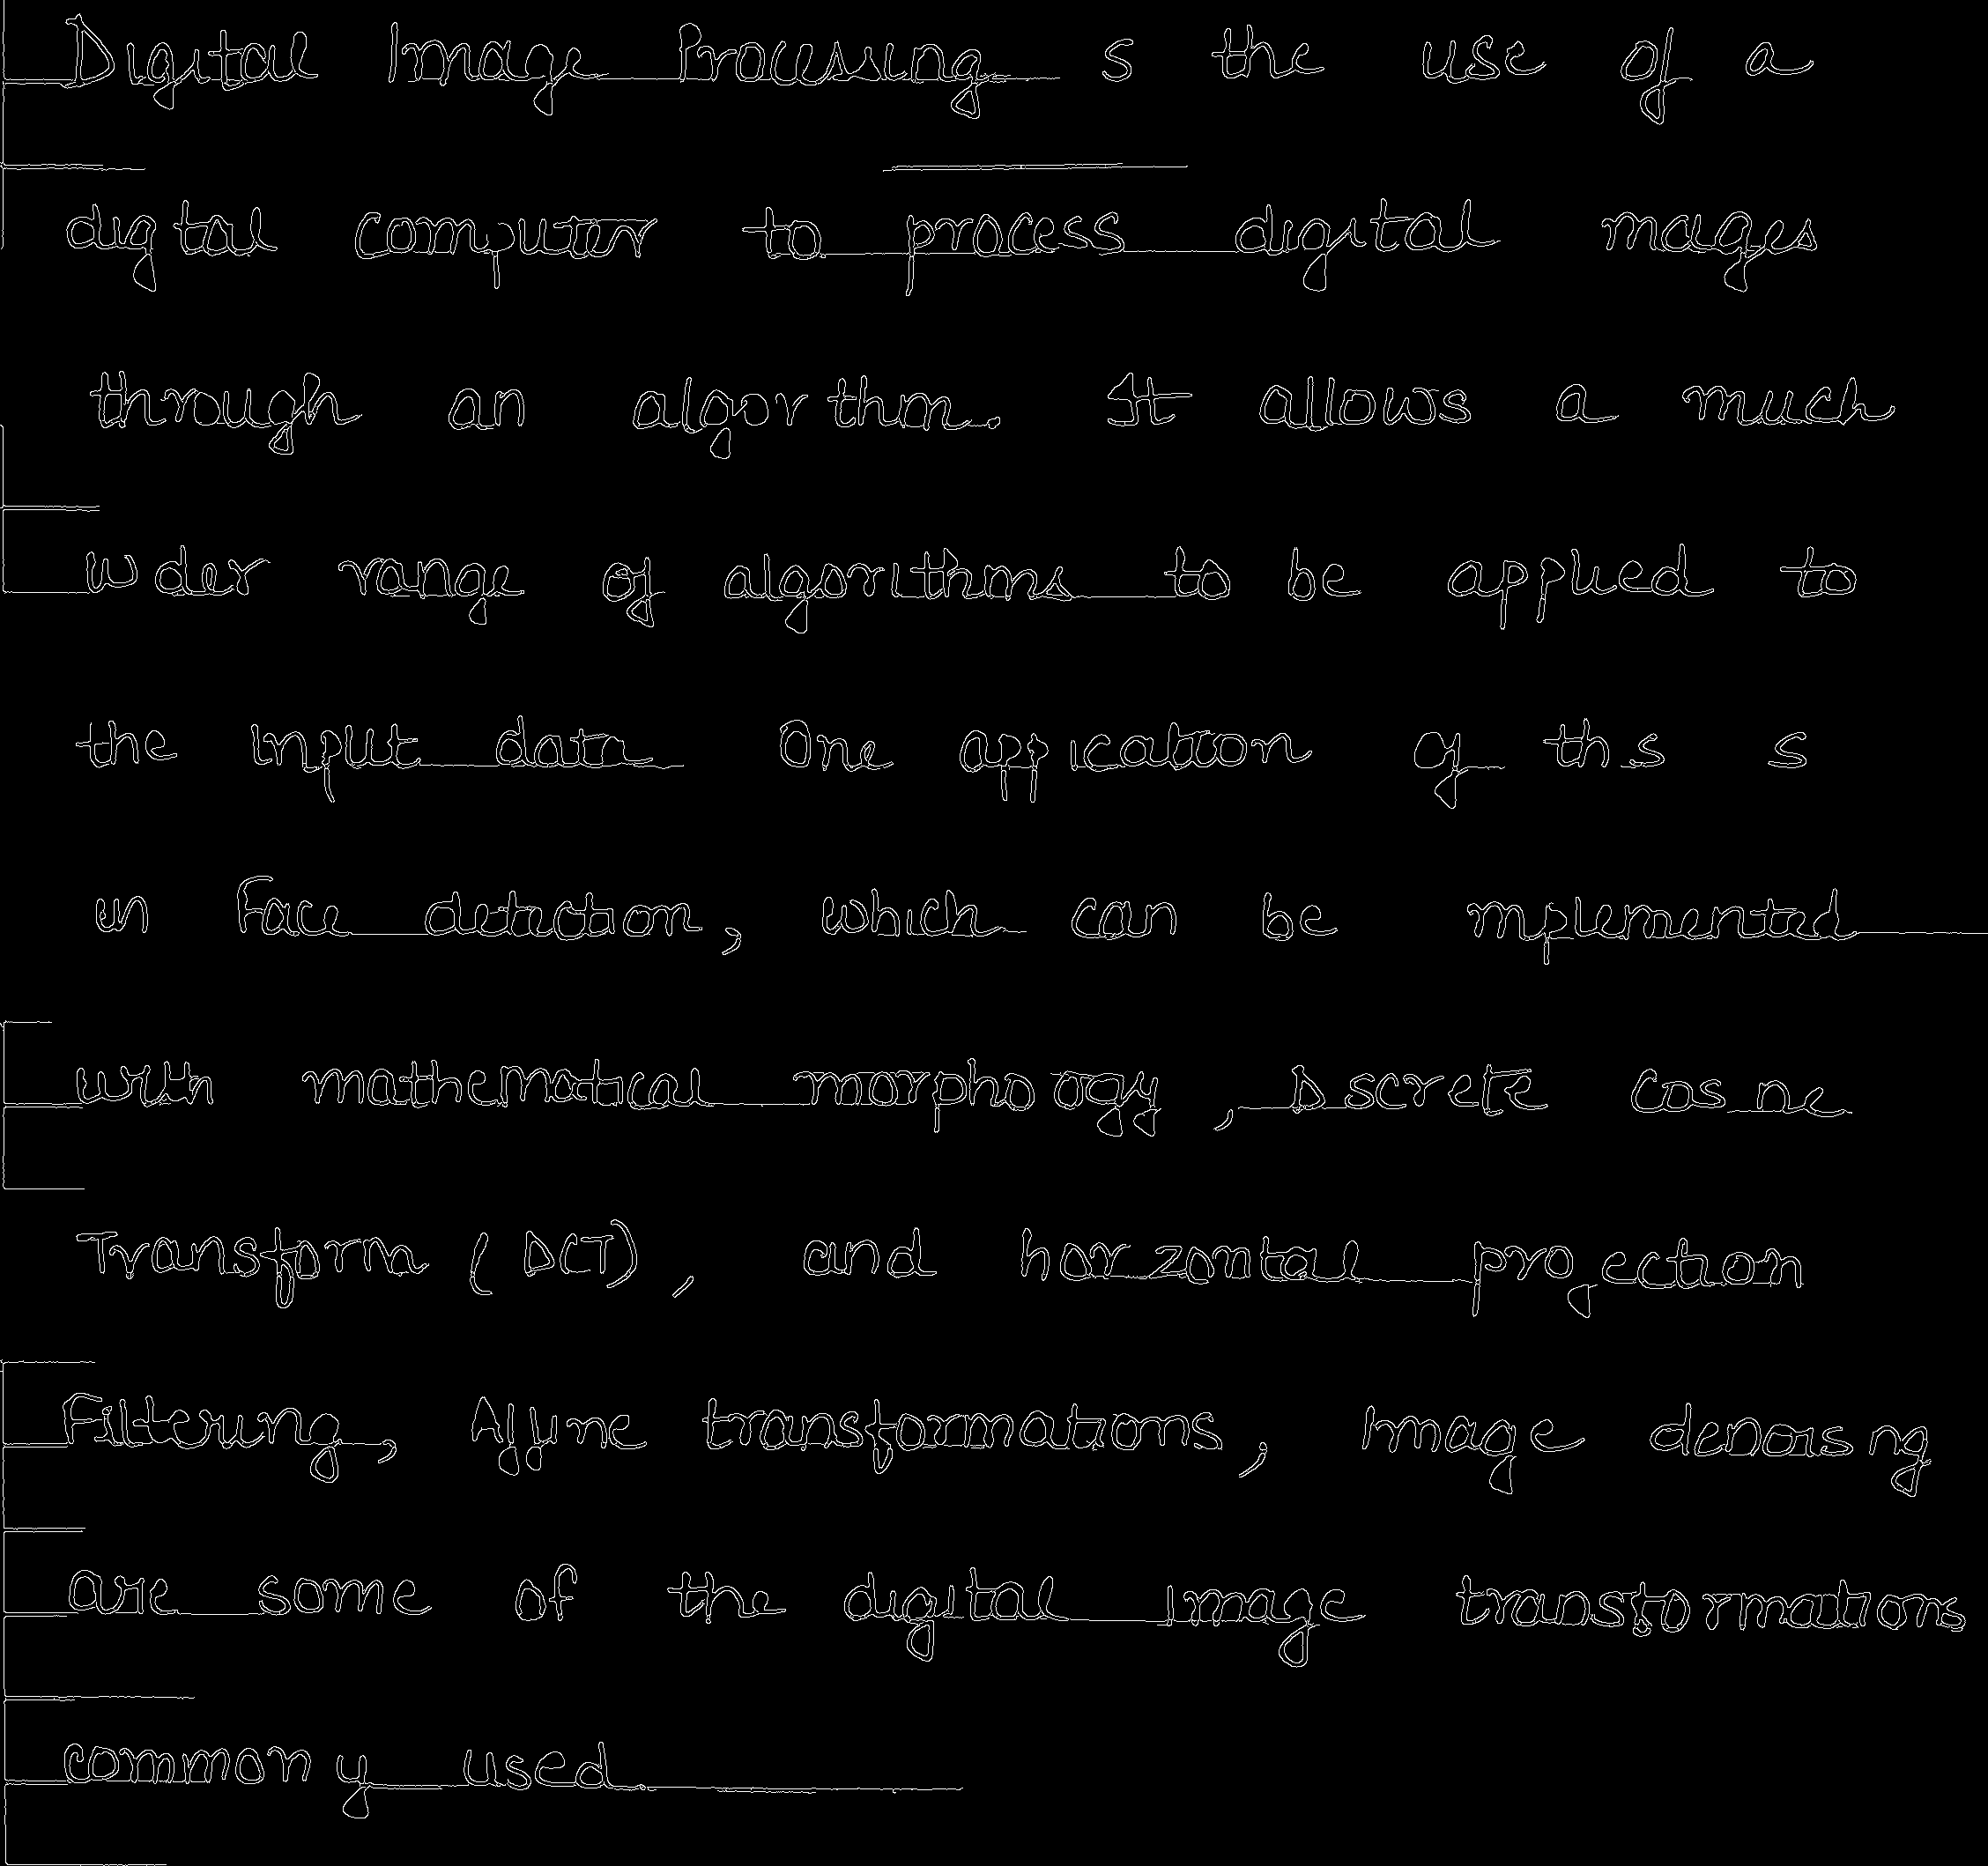 Digital Image Processing s the use of a
digtal computer to process digital mages
through an algorthm. It allows a much
wder range of algorithms to be applied to
the input data One appication of ths s
in Face detection, which can be mplemented
with mathematical morpho ogy, Dscrete Cosne
Transform (DCT), and horzontal projection
Filtering, Affine transformations, Image denoisng
are some of the digital image transformations
common y used